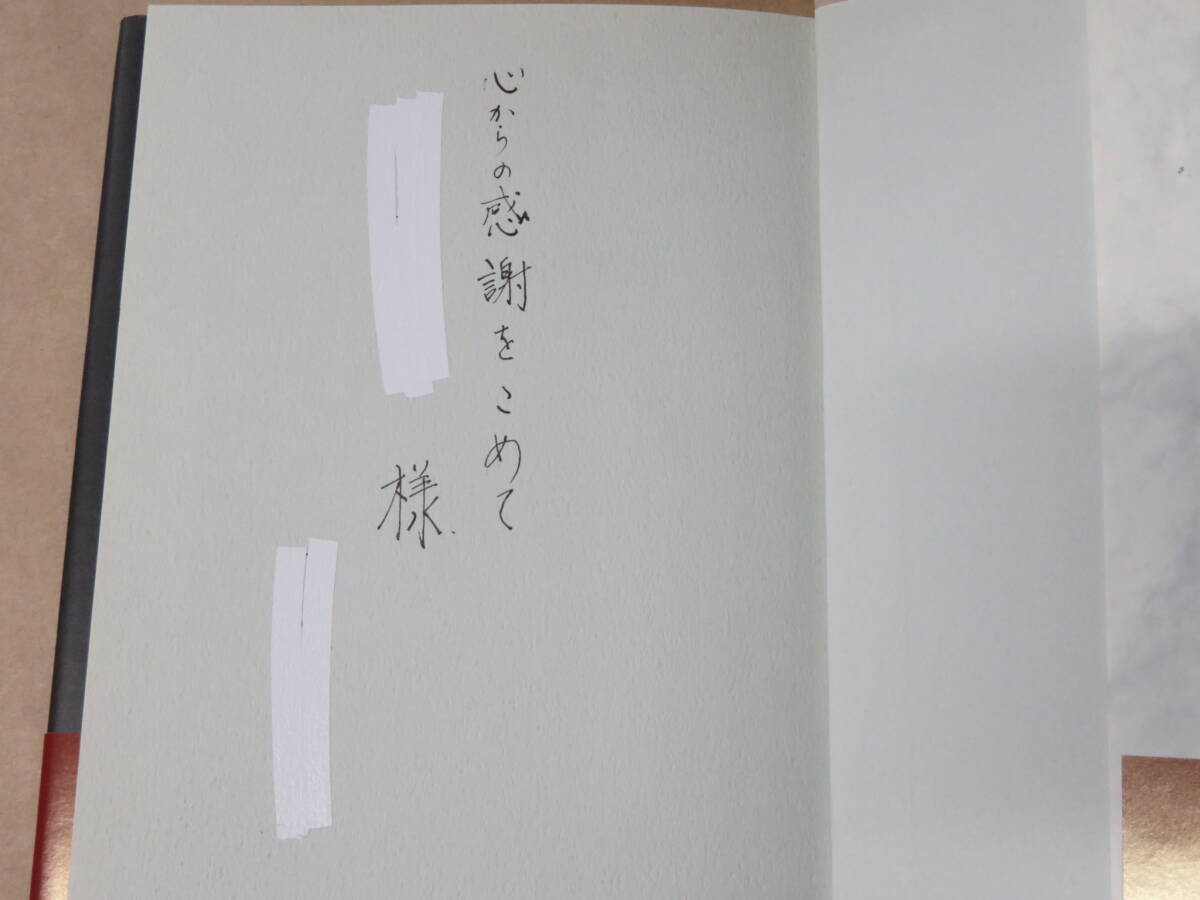 心からの感謝をこめて
様